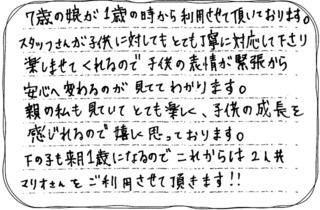 7歳の娘が1歳の時から利用させて頂いております。
スタッフさんが子供に対してもとても丁寧に対応して下さり
楽しませてくれるので子供の表情が緊張から
安心へ変わるのが見ててわかります。
親の私も見ていてとても楽しく、子供の成長を
感じれるので嬉しく思っております。
下の子も来月1歳になるのでこれからは2人共
マリオさんをご利用させて頂きます!!